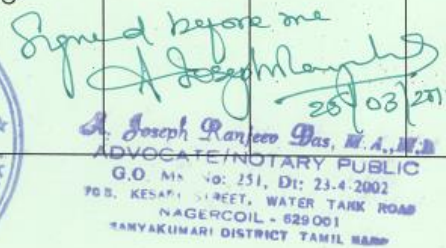 Signed before me
A Joseph Ranjeev
25/03/201
A. Joseph Ranjeev Das, M.A., M.B
ADVOCATE/NOTARY PUBLIC
G.O. Ms No: 251, Dt: 23-4-2002
70B, KESARI STREET, WATER TANK ROAD
NAGERCOIL - 629001
KANYAKUMARI DISTRICT TAMIL